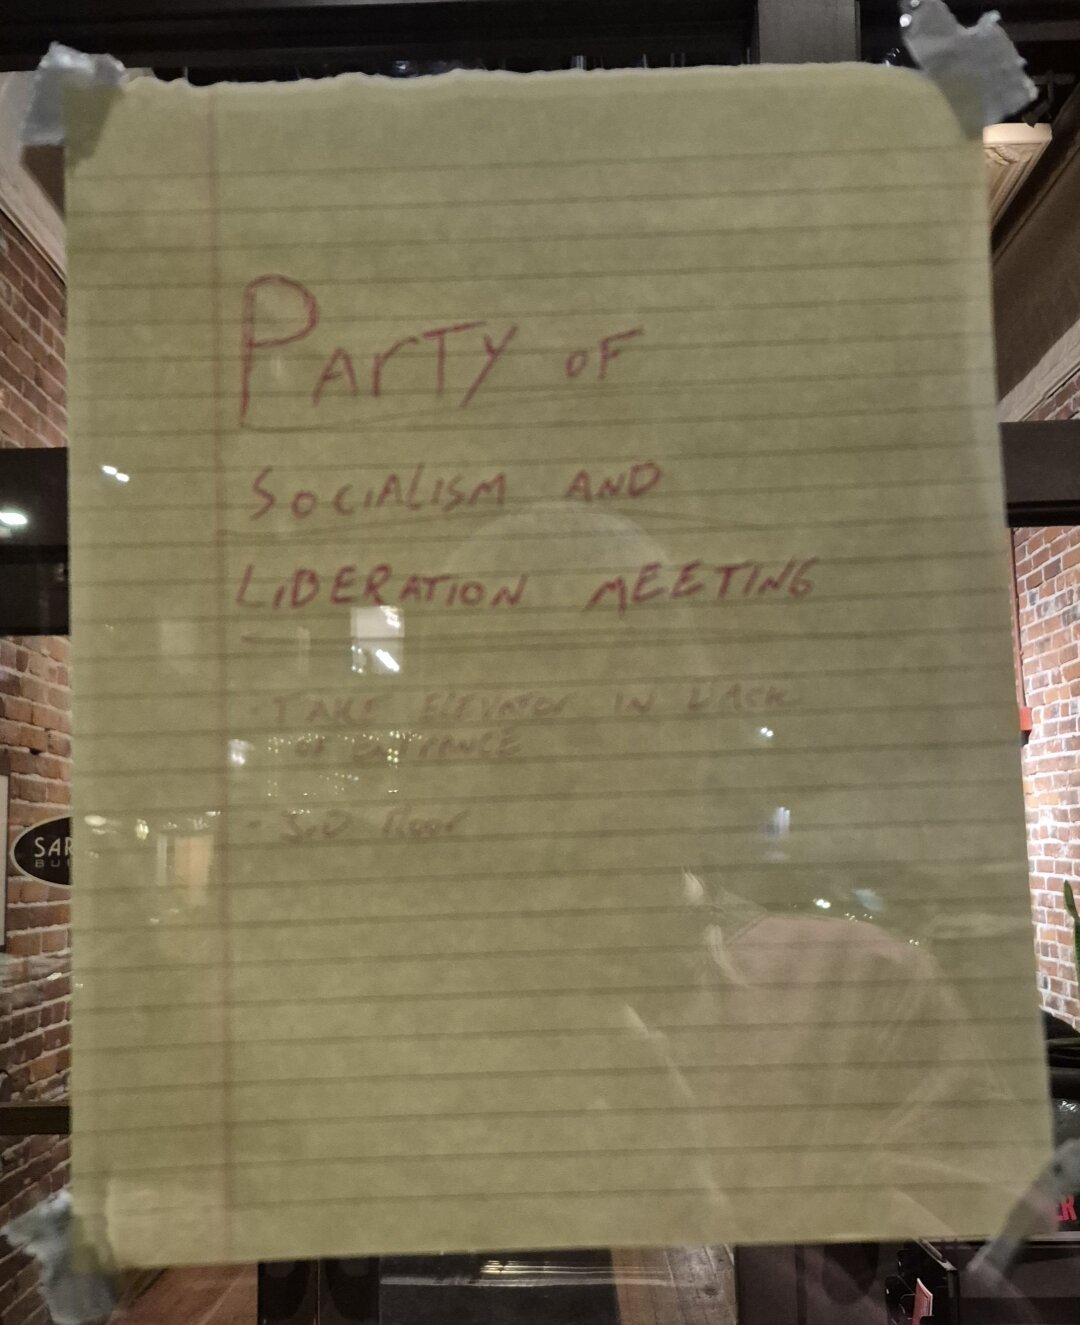 PArTY OF
SOCIALISM AND
LIBERATION MEETING
· TAKE ELEVATOR IN BACK
OF ENTRANCE
· 3rD floor
SAR